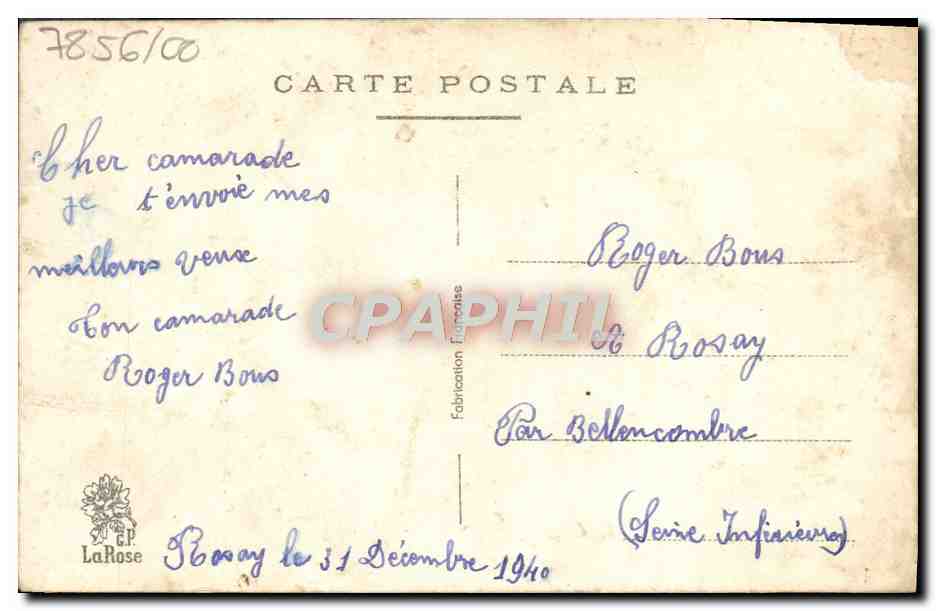 7856/00
CARTE POSTALE
Cher camarade
je t'envoie mes
meilleurs veux
Ton camarade
Roger Bous
Fabrication Française
CPAPHIL
Roger Bous
A Rosay
Par Bellencombre
(Seine Inférièvre)
C.P.
LaRose
Rosay le 31 Décembre 1940